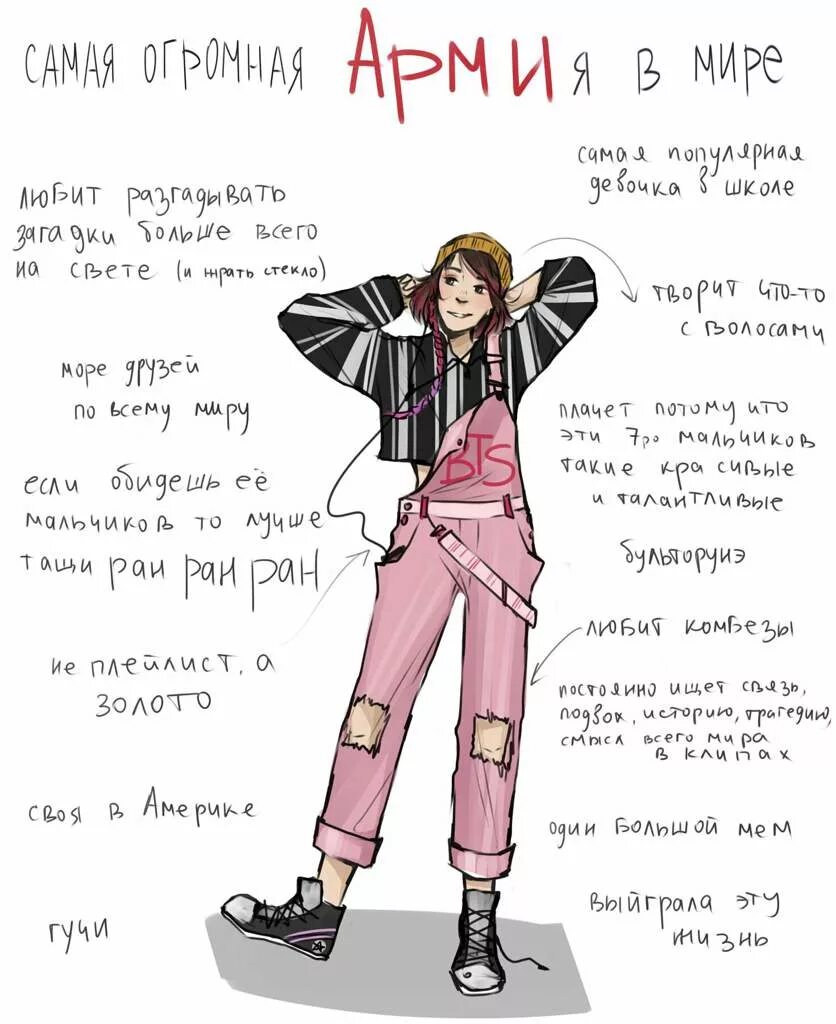 САМАЯ ОГРОМНАЯ АРМИЯ В МИРЕ
самая популярная
девочка в школе
любит разгадывать
загадки больше всего
на свете (и жрать стекло)
творит что-то
с волосами
море друзей
по всему миру
плачет потому что
эти 7ро мальчиков
такие красивые
и талантливые
BTS
если обидешь её
мальчиков то лучше
тащи ран ран ран
бульторунэ
любит комбезы
не плейлист, а
золото
постоянно ищет связь,
подвох, историю, трагедию,
смысл всего мира
в клипах
своя в Америке
один большой мем
гучи
выйграла эту
жизнь